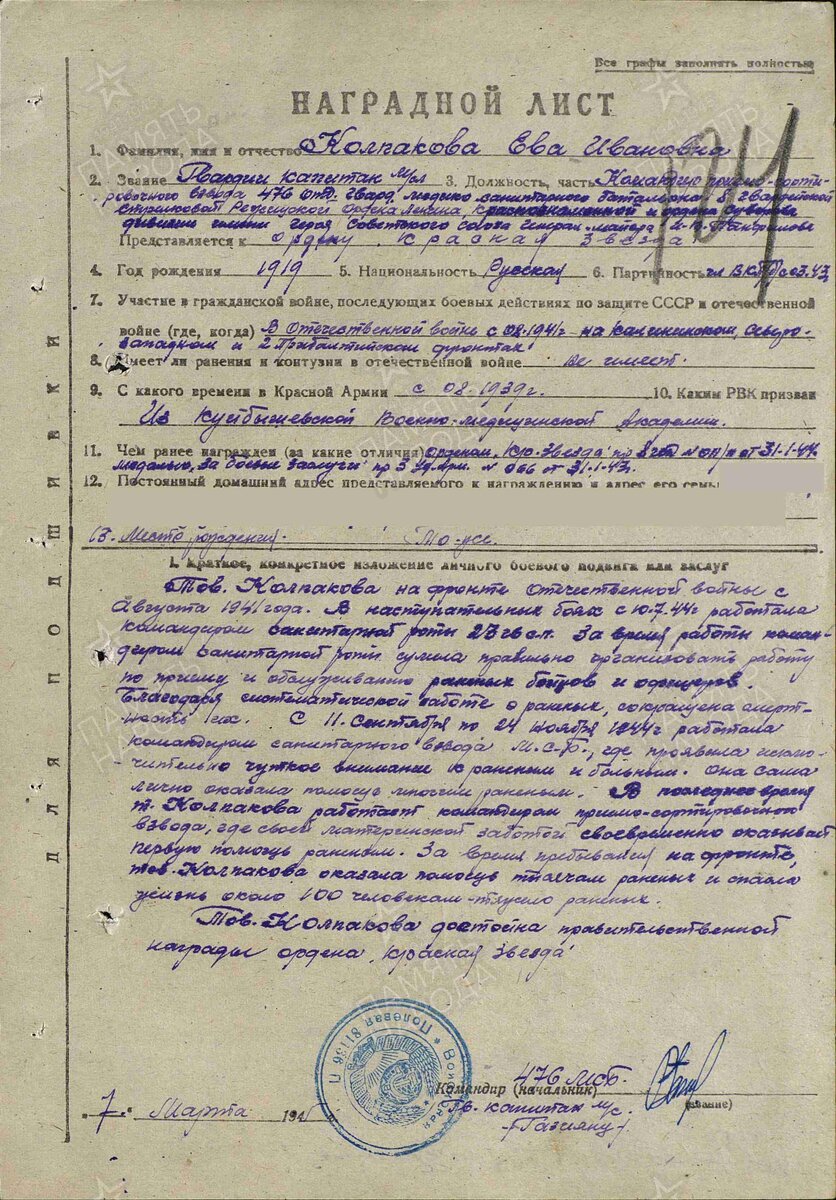 Все графы заполнять полностью
НАГРАДНОЙ ЛИСТ
1. Фамилия, имя и отчество Колпакова Ева Ивановна
2. Звание Гвардии капитан м/сл 3. Должность, часть Командир приемо-сорти-
ровочного взвода 476 отд. гвард. медико-санитарного батальона 8 гвардейской
стрелковой Режицкой ордена Ленина, краснознаменной и ордена Суворова
дивизии имени героя Советского Союза генерал-майора И.В. Панфилова
Представляется к ордену "Красная Звезда"
4. Год рождения 1919 5. Национальность Русская 6. Партийность чл ВКП(б) с 03.43
7. Участие в гражданской войне, последующих боевых действиях по защите СССР и отечественной
войне (где, когда) В Отечественной войне с 08.1941г на Калининском, Северо-
западном и 2 Прибалтийском фронтах
8. Имеет ли ранения и контузии в отечественной войне не имеет.
9. С какого времени в Красной Армии с 08.1939г. 10. Каким РВК призван
Из Куйбышевской Военно-медицинской Академии.
11. Чем ранее награжден (за какие отличия) орденом "Кр. Звезда" пр 8 гсд от 31.1.44.
медалью "За боевые заслуги" пр 3 уд. Арм. № 066 от 31.1.43.
12. Постоянный домашний адрес представляемого к награждению и адрес его семьи
13. Место рождения. То-же.
ДЛЯ ПОДШИВКИ
I. Краткое, конкретное изложение личного боевого подвига или заслуг
Тов. Колпакова на фронте Отечественной войны с
Августа 1941 года. В наступательных боях с 10.7.44г работала
командиром санитарной роты 23 гв с.п. За время работы коман-
диром санитарной роты сумела правильно организовать работу
по приему и обслуживанию раненых бойцов и офицеров.
Благодаря систематической заботе о раненых, сокращена смерт-
ность их. С 11. Сентября по 24 ноября 1944г работала
командиром санитарного взвода М.С.Б., где проявила исклю-
чительно чуткое внимание к раненым и больным. Она сама
лично оказала помощь многим раненым. В последнее время
т. Колпакова работает командиром приемо-сортировочного
взвода, где своей материнской заботой своевременно оказывает
первую помощь раненым. За время пребывания на фронте,
тов. Колпакова оказала помощь тысячам раненых и спасла
жизнь около 100 человекам-тяжело раненых.
Тов. Колпакова достойна правительственной
награды ордена "Красная Звезда"
476 МСБ.
Командир (начальник)
Гв. капитан м/с.
(звание)
7. Марта 194
Полевая
Войсковая
ПАМЯТЬ НАРОДА